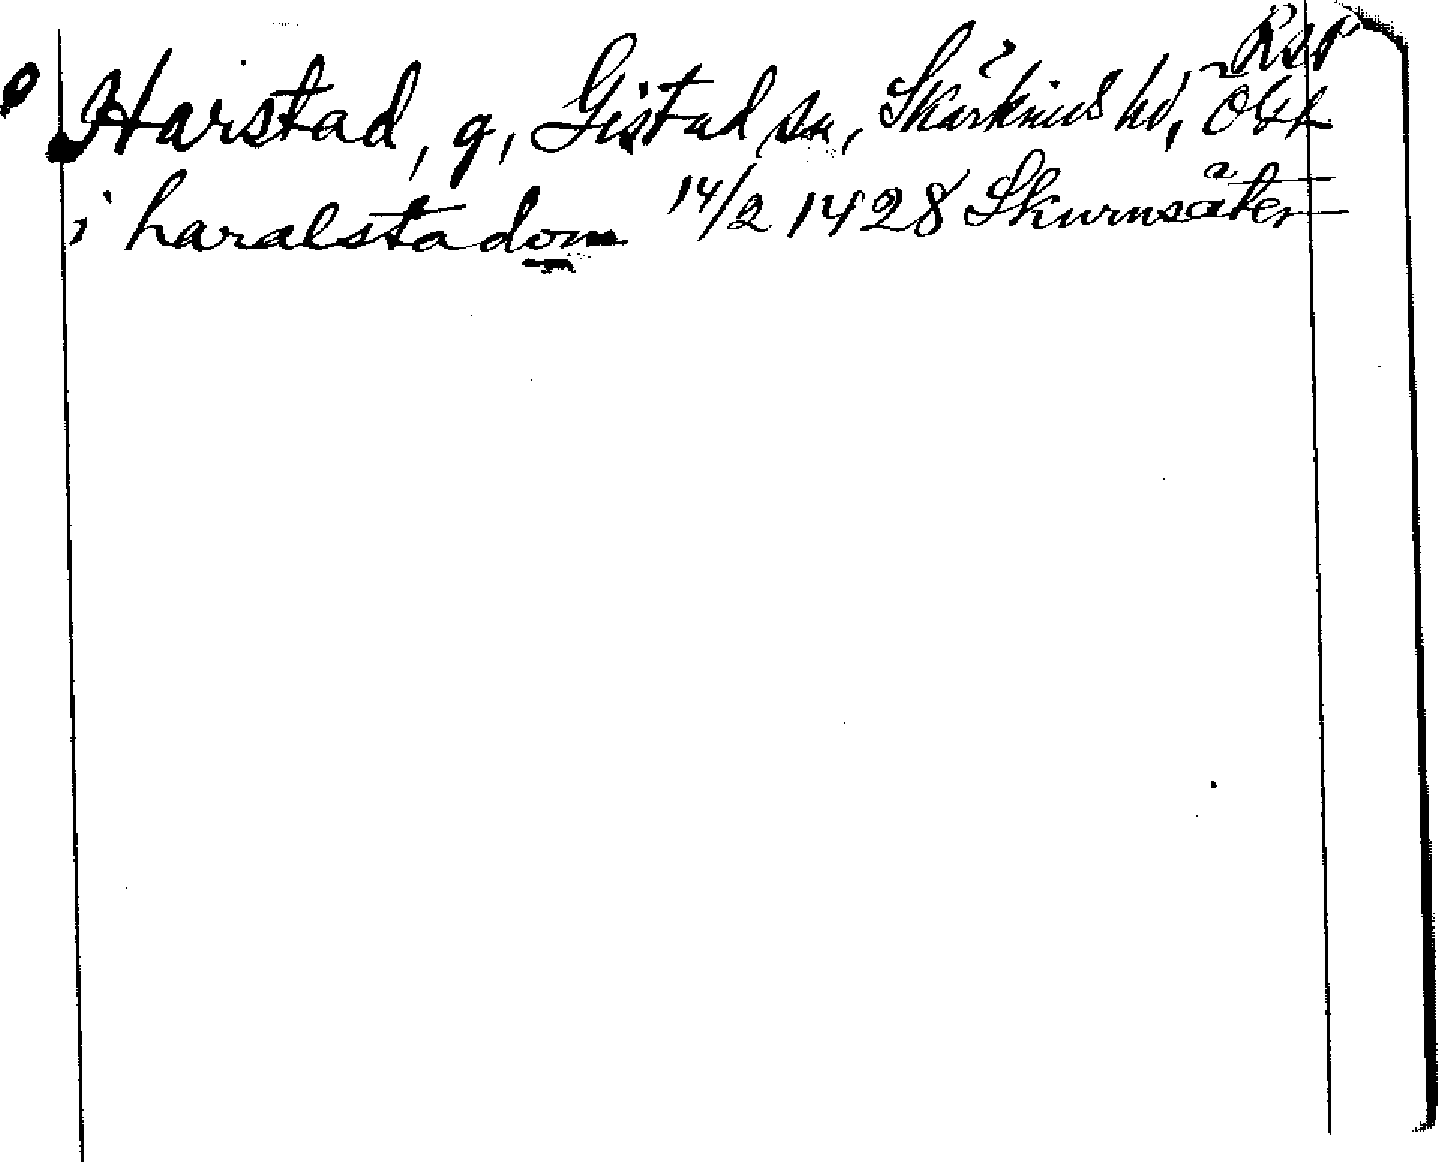 Rsp
Harstad, g, Gistad sn, Skärkinds hd, Ögtl
i haralstadom 14/2 1428 Skurusäter